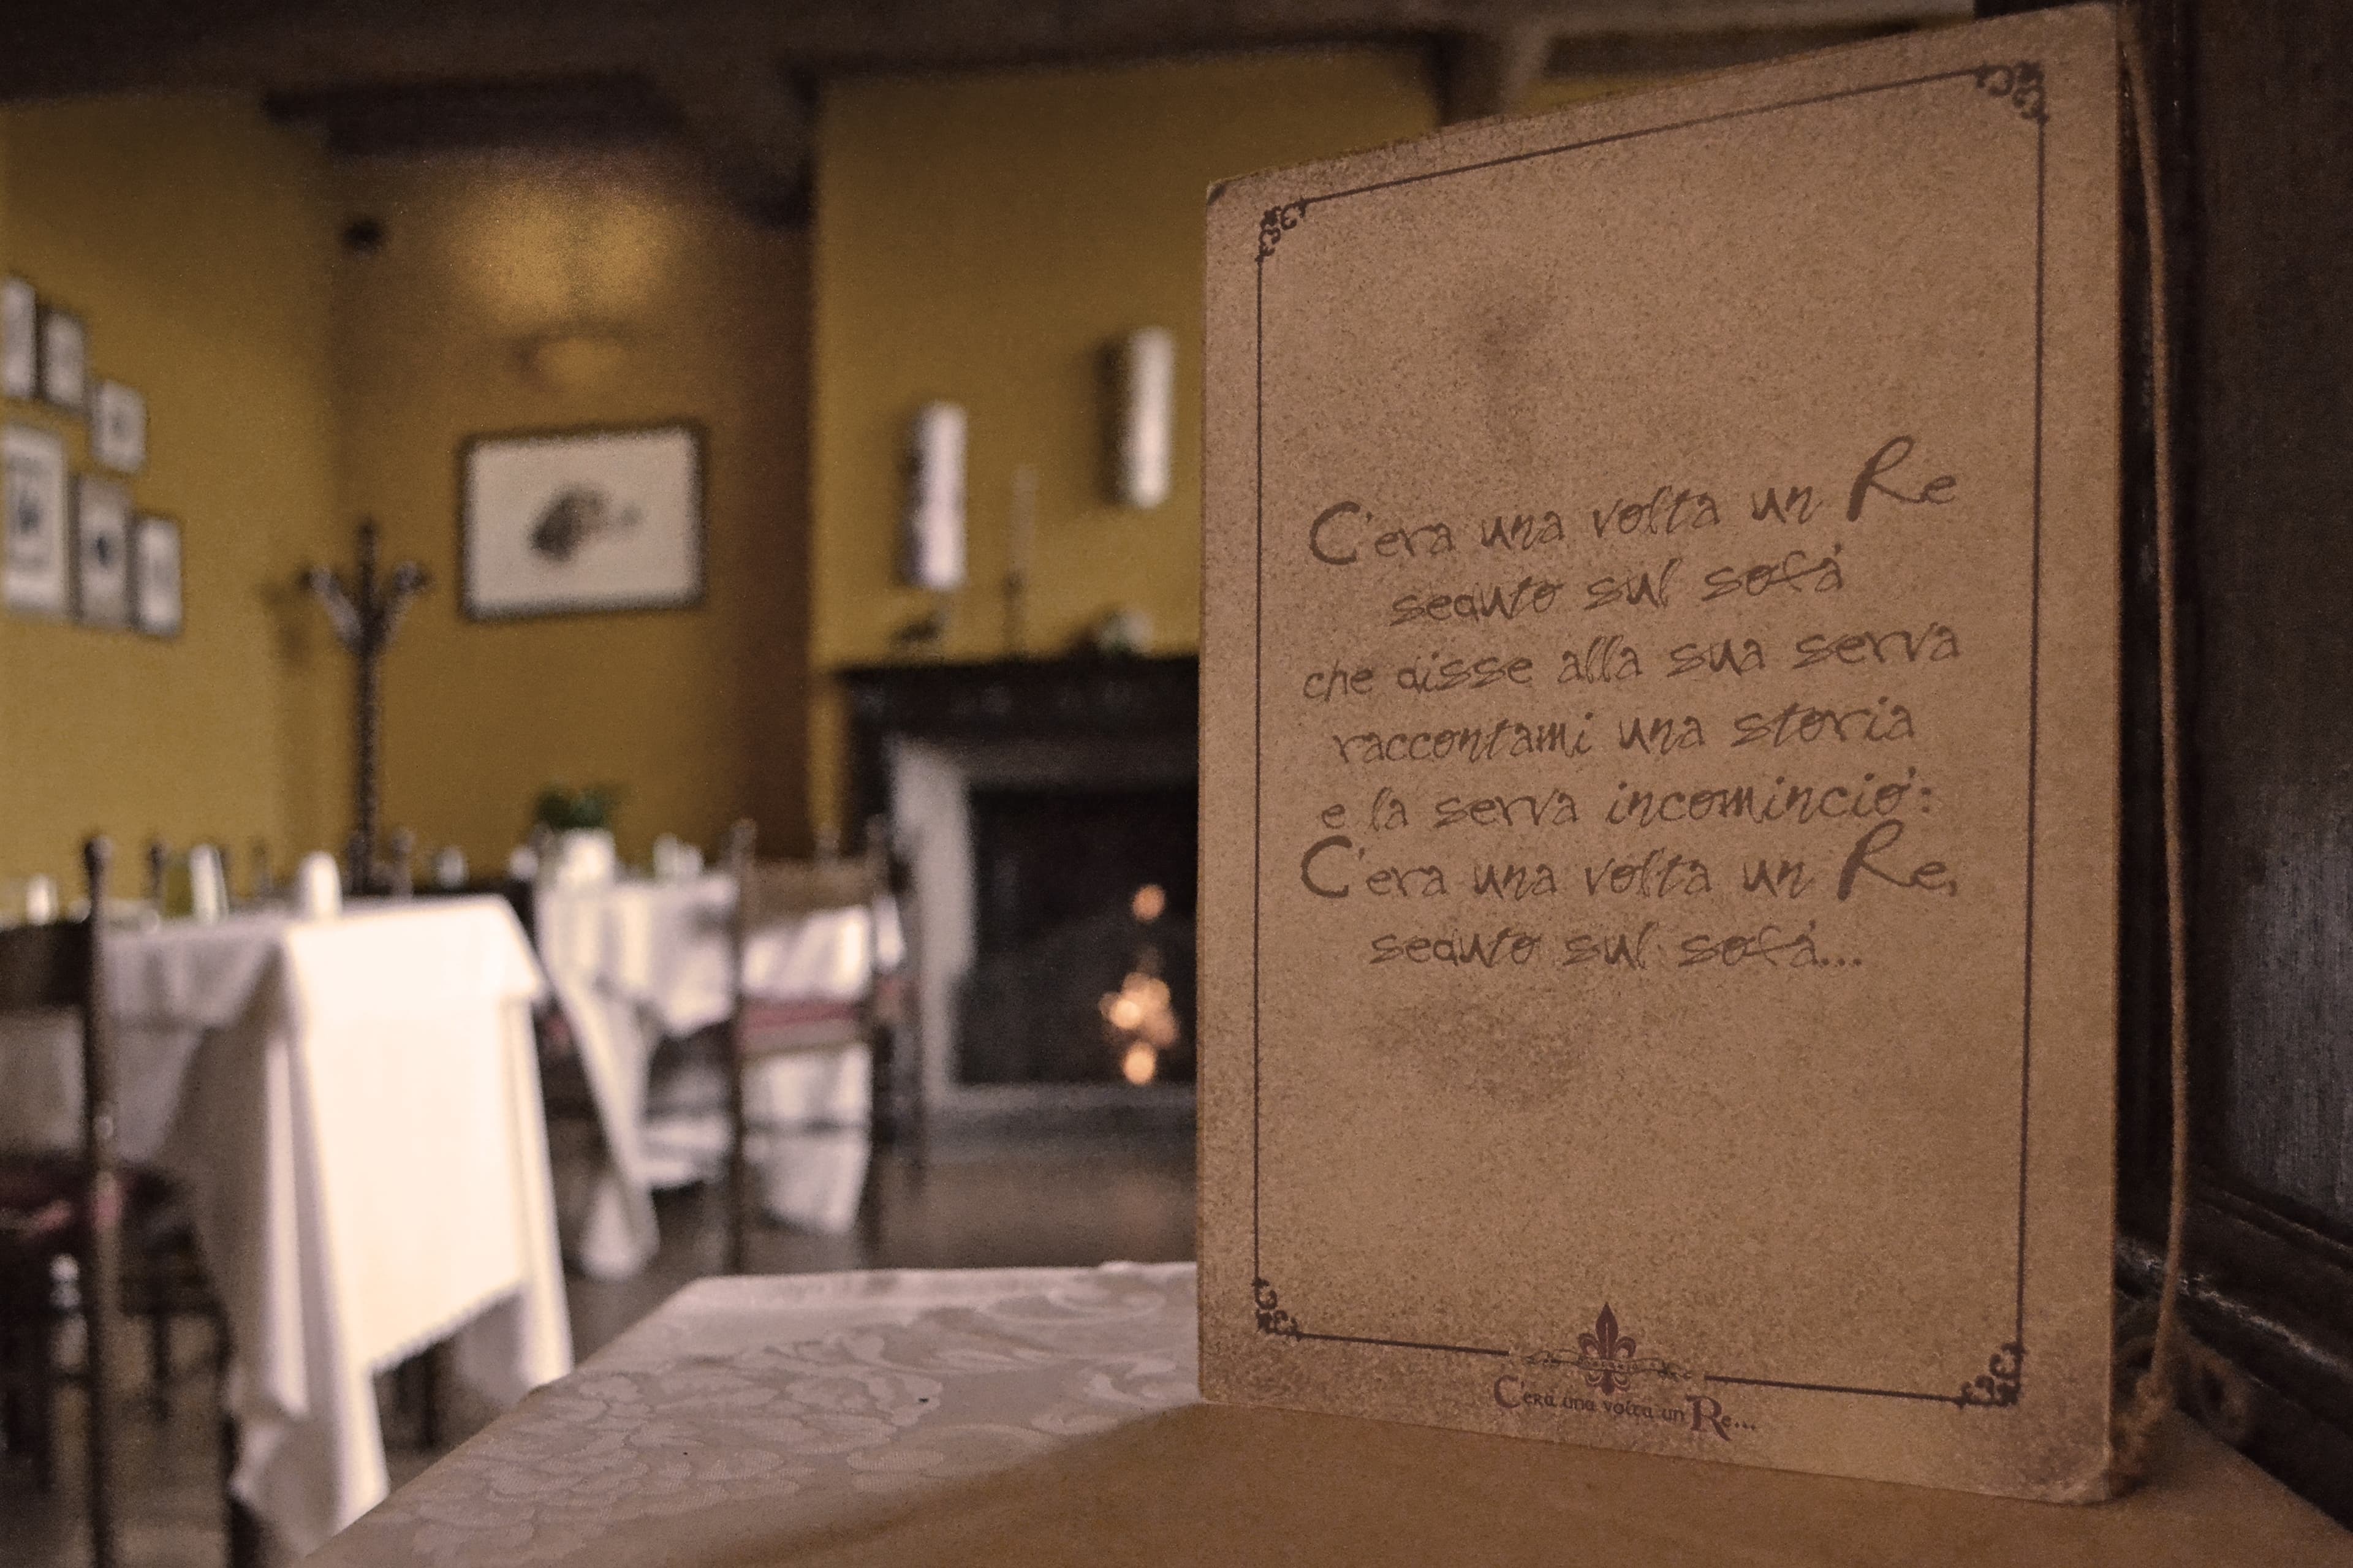 C'era una volta un Re
seduto sul sofa'
che disse alla sua serva
raccontami una storia
e la serva incomincio':
C'era una volta un Re,
seduto sul sofa'...
C'era una volta un Re...